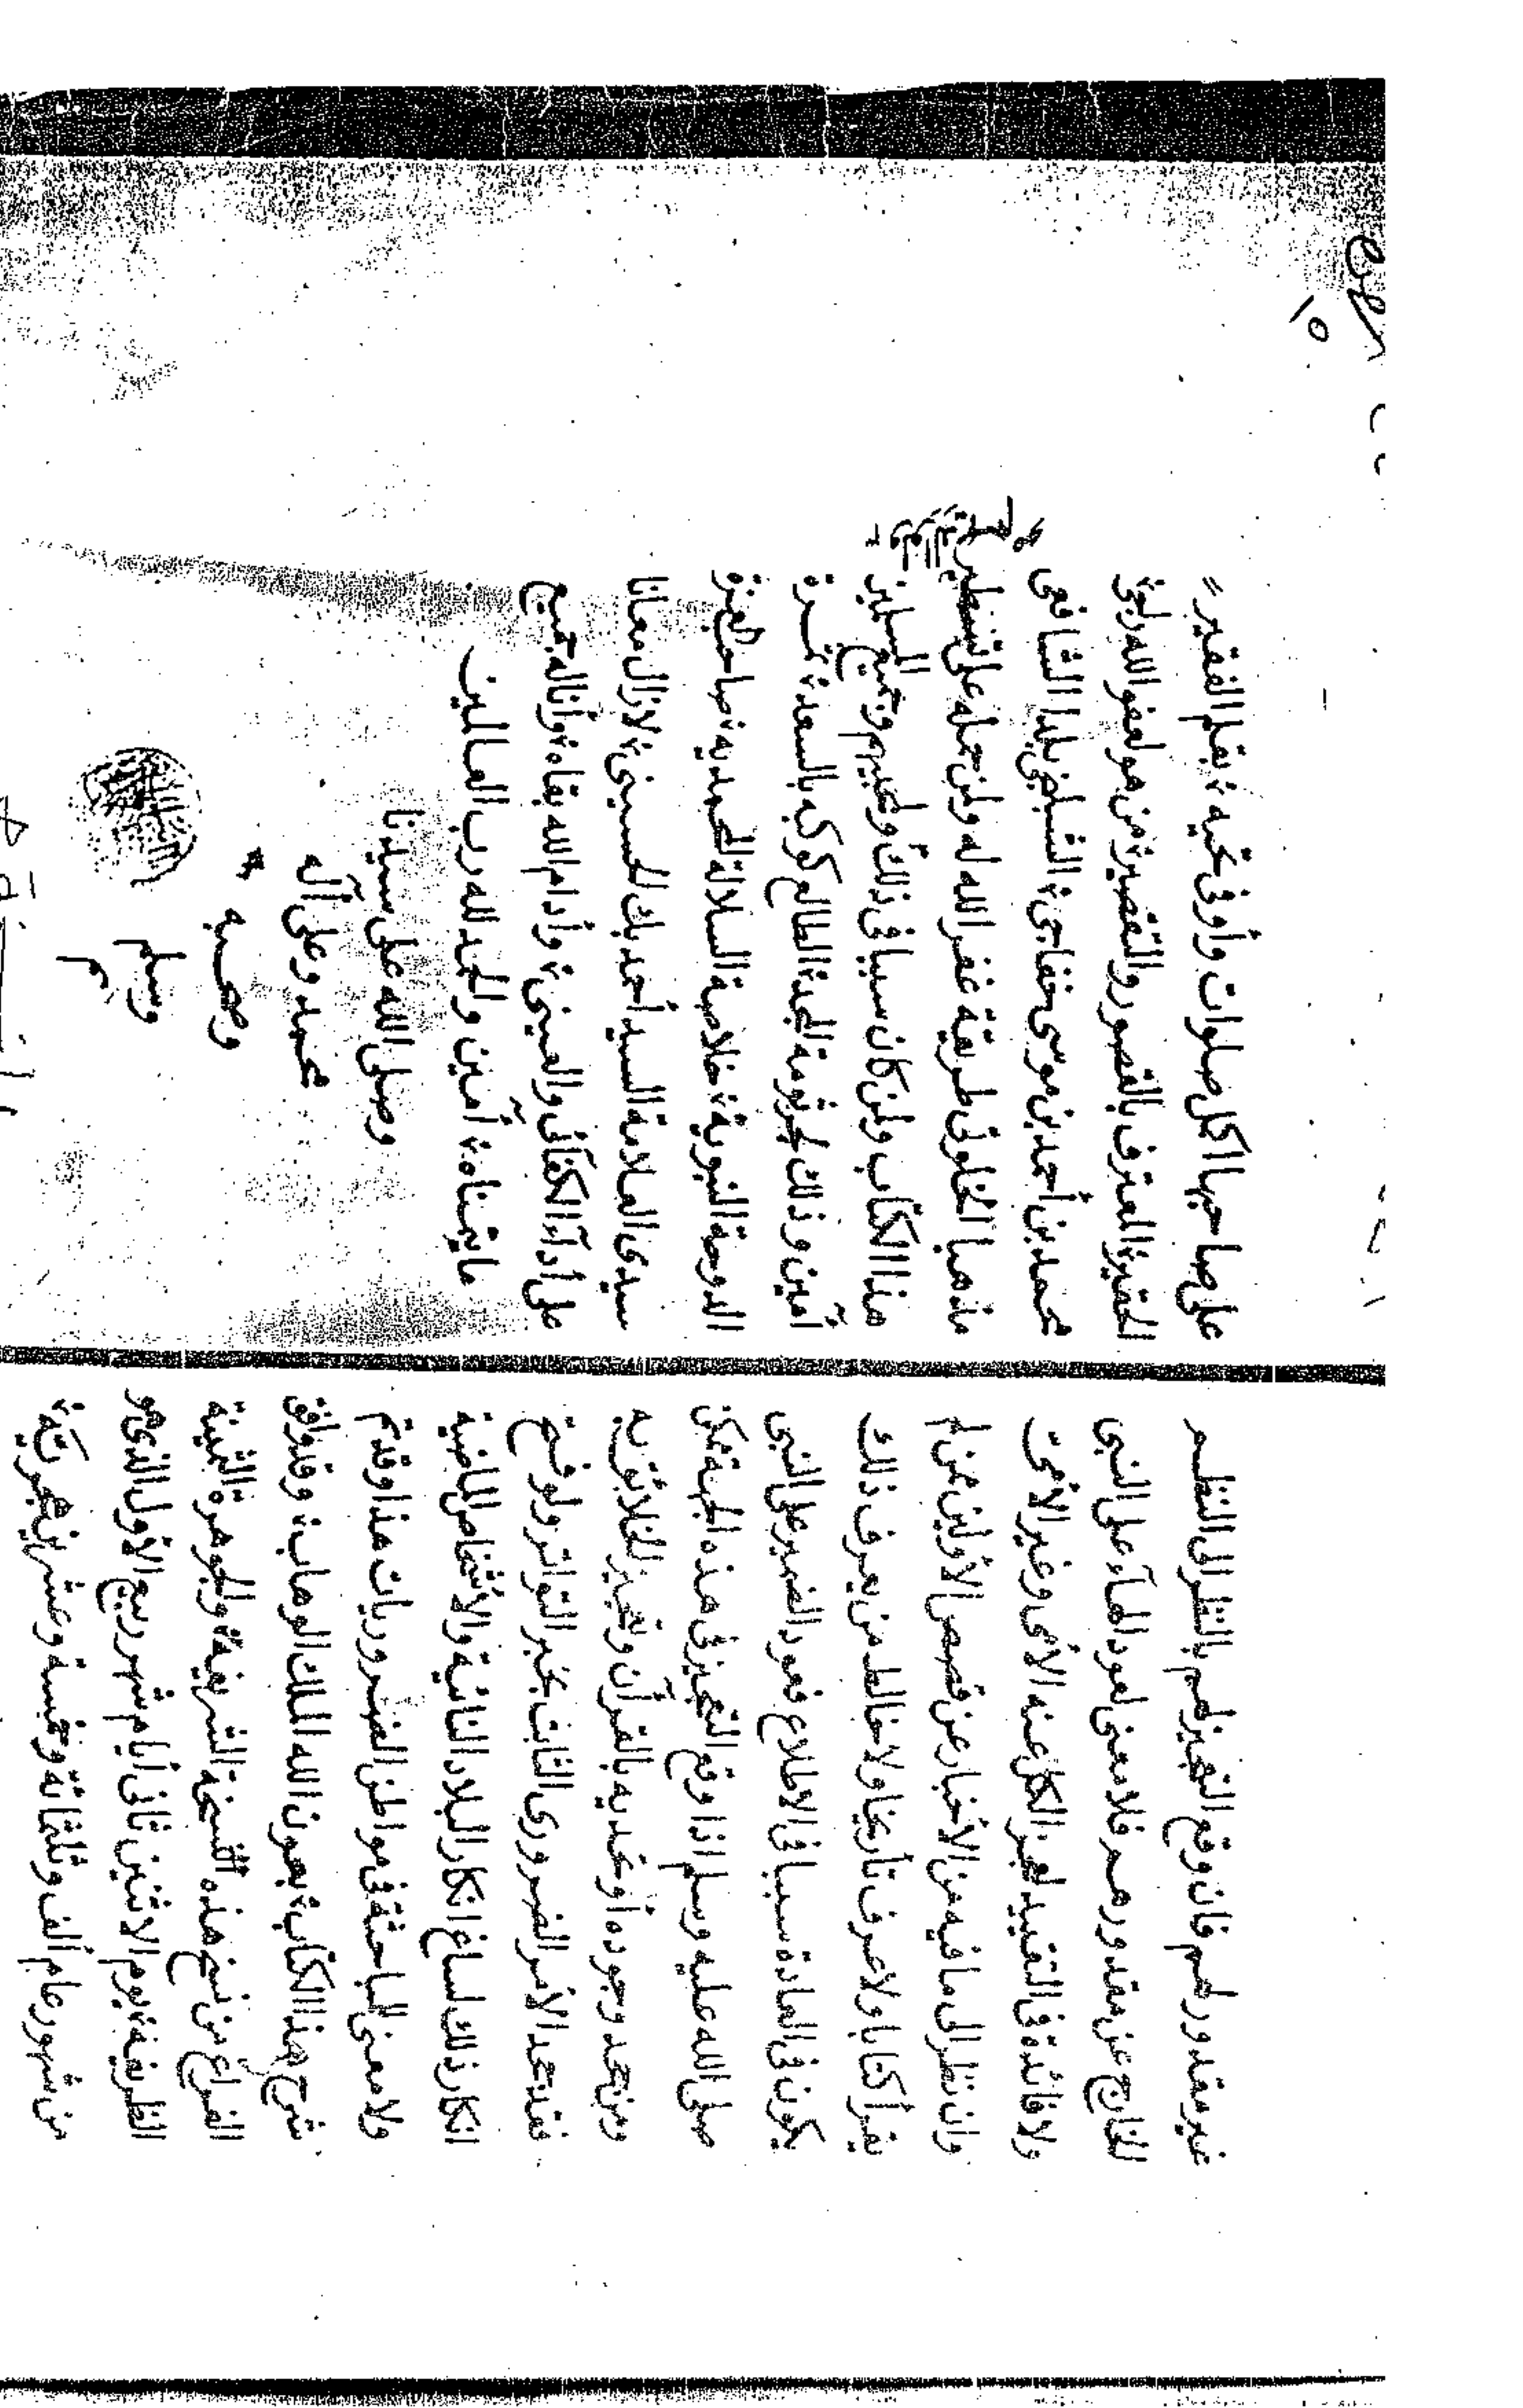 غير مقدور لهم فان وقع التعجيز لهم بالنظر الى النظم
الخارج عن مقدورهم فلا معنى لعود الهآء على النبى
ولا فائدة فى التقييد لعجز الكل عنه الأمى وغير الأمى
وان نظر الى ما فيه من الأخبار عن قصص الأولين ممن لم
يقرأ كتابا ولا عرف تأريخا ولا خالط من يعرف ذلك
يكون فى العادة سببا فى الاطلاع فعود الضمير على النبى
صلى الله عليه وسلم اذا وقع التعجيز فى هذه الجهة ممكن
ومن جحد وجوده أو تحديه بالقرآن وتعجيز الخلائق به
فقد جحد الأمر الضرورى الثابت بخبر التواتر ولو فتح
انكار ذلك لساغ انكار البلاد النائية والأشخاص الماضية
ولا معنى للباحثة فى مواطن الضروريات هذا وقد تم
شرح هذا الكتاب بعون الله الملك الوهاب وقد وافق
الفراغ من نسخ هذه النسخة الشريفة والجوهرة الثمينة
الظريفة يوم الاثنين ثانى أيام شهر ربيع الأول الذى هو
من شهور عام ألف وثلثمائة وخمسة وعشرين هجرية
على صاحبها اكمل صلوات وأوفى تحية بقلم الفقير
الحقير المعترف بالقصور والتقصير من هو لعفو الله راجى
محمد بن أحمد بن موسى خفاجى الشباطى بلدا الشافعى
مذهبا الخلوتى طريقة غفر الله له ولمن حمله على تسطير
هذا الكتاب ولمن كان سببا فى ذلك ولجميع المسلمين
آمين وذلك لجرثومة المجد الطالع كوكبه بالسعد ثمرة
الدوحة النبوية خلاصة السلالة المحمدية صاحب العزة
سيدى العلامة السيد أحمد بك الحسينى لا زال معانا
على أدآء الكفآئى والعينى وأدام الله بقاه وأناله جميع
ما يتمناه آمين والحمد لله رب العالمين
وصلى الله على سيدنا
محمد وعلى آله
وصحبه
وسلم
م
١٥